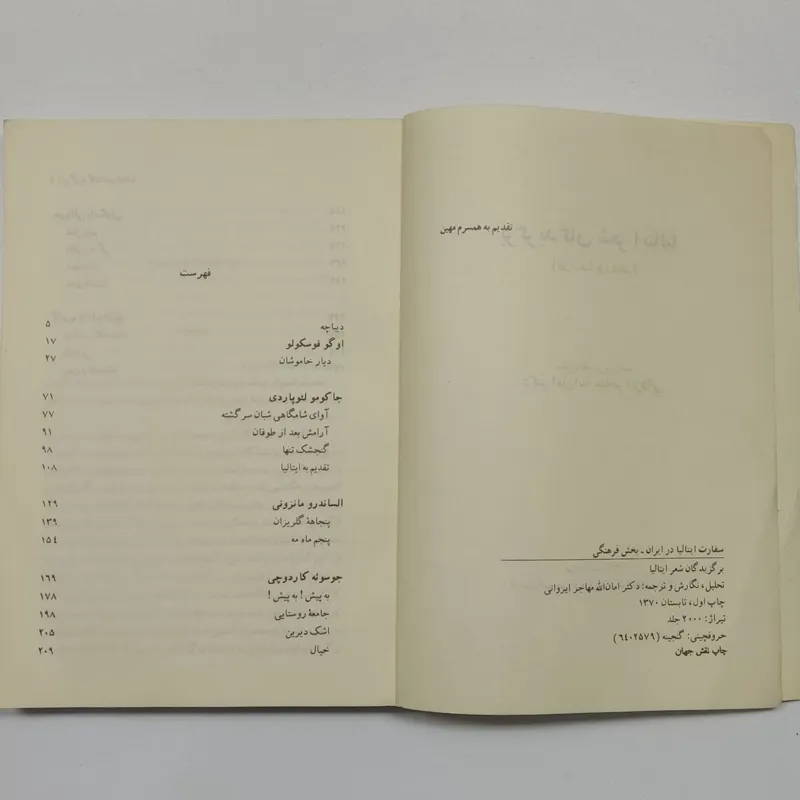 تقدیم به همسرم مهین
سفارت ایتالیا در ایران ـ بخش فرهنگی
برگزیدگان شعر ایتالیا
تحلیل، نگارش و ترجمه: دکتر امان‌الله مهاجر ایروانی
چاپ اول، تابستان ۱۳۷۰
تیراژ: ۲۰۰۰ جلد
حروفچینی: گنجینه (۶۴۰۲۵۷۹)
چاپ نقش جهان
فهرست
دیباچه ۵
اوگو فوسکولو ۱۷
دیار خاموشان ۲۷
جاکومو لئوپاردی ۷۱
آوای شامگاهی شبان سرگشته ۷۷
آرامش بعد از طوفان ۹۱
گنجشک تنها ۹۸
تقدیم به ایتالیا ۱۰۸
الساندرو مانزونی ۱۲۹
پنجاههٔ گلریزان ۱۳۹
پنجم ماه مه ۱۵۴
جوسوئه کاردوچی ۱۶۹
به پیش! به پیش! ۱۷۸
جامعهٔ روستایی ۱۹۸
اشک دیرین ۲۰۵
خیال ۲۰۹